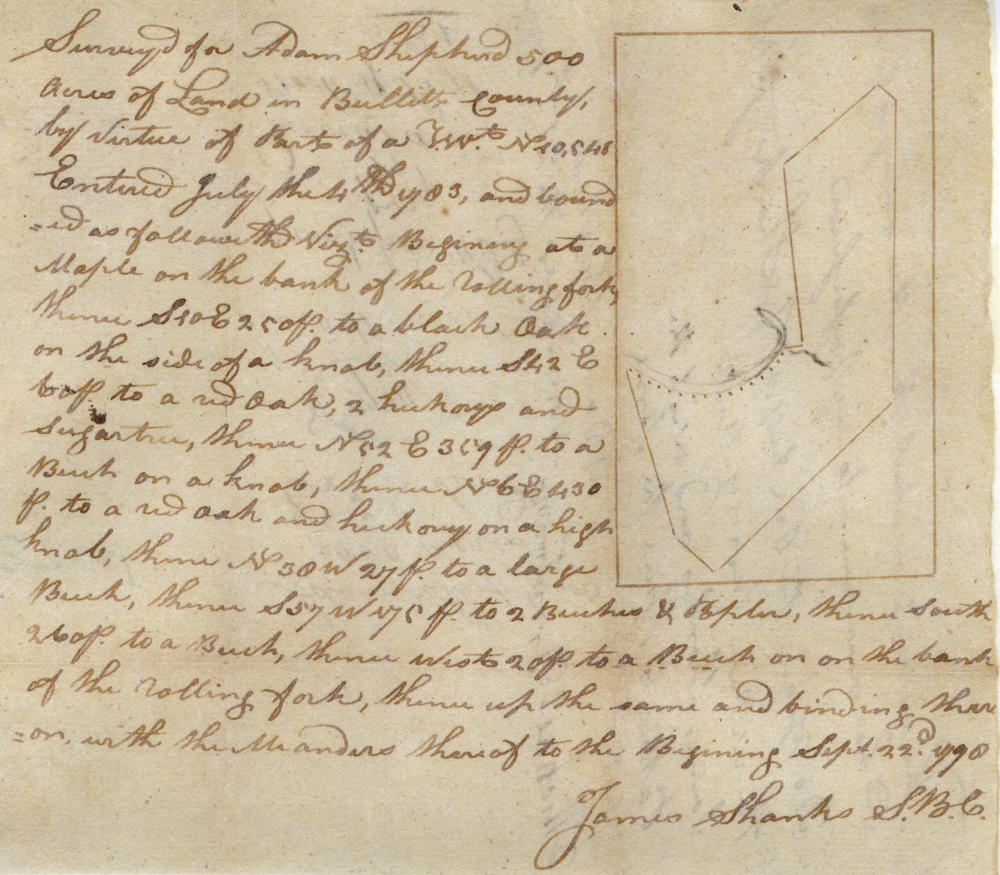 Survey'd for Adam Shepherd 500
Acres of Land in Bullitt County,
by Virtue of Part of a T.Wt. No 10,546
Entered July the 4th 1783, and bound
=ed as followeth Vizt. Begining at a
Maple on the bank of the rolling fork,
thence S10E 250p. to a black Oak
on the side of a knob, thence S42E
60p. to a red Oak, 2 hickorys and
Sugartree, thence N52E 359p. to a
Buch on a knob, thence N6E 430
p. to a red oak and hickory on a high
knob, thence N38W 27p. to a large
Buch, thence S57W 175p. to 2 Buches & Popler, thence South
260p. to a Buch, thence West 20p. to a Buch on on the bank
of the rolling fork, thence up the same and binding there
=on, with the Meanders thereof to the Begining Sept. 22d. 1798
James Shanks S.B.C.